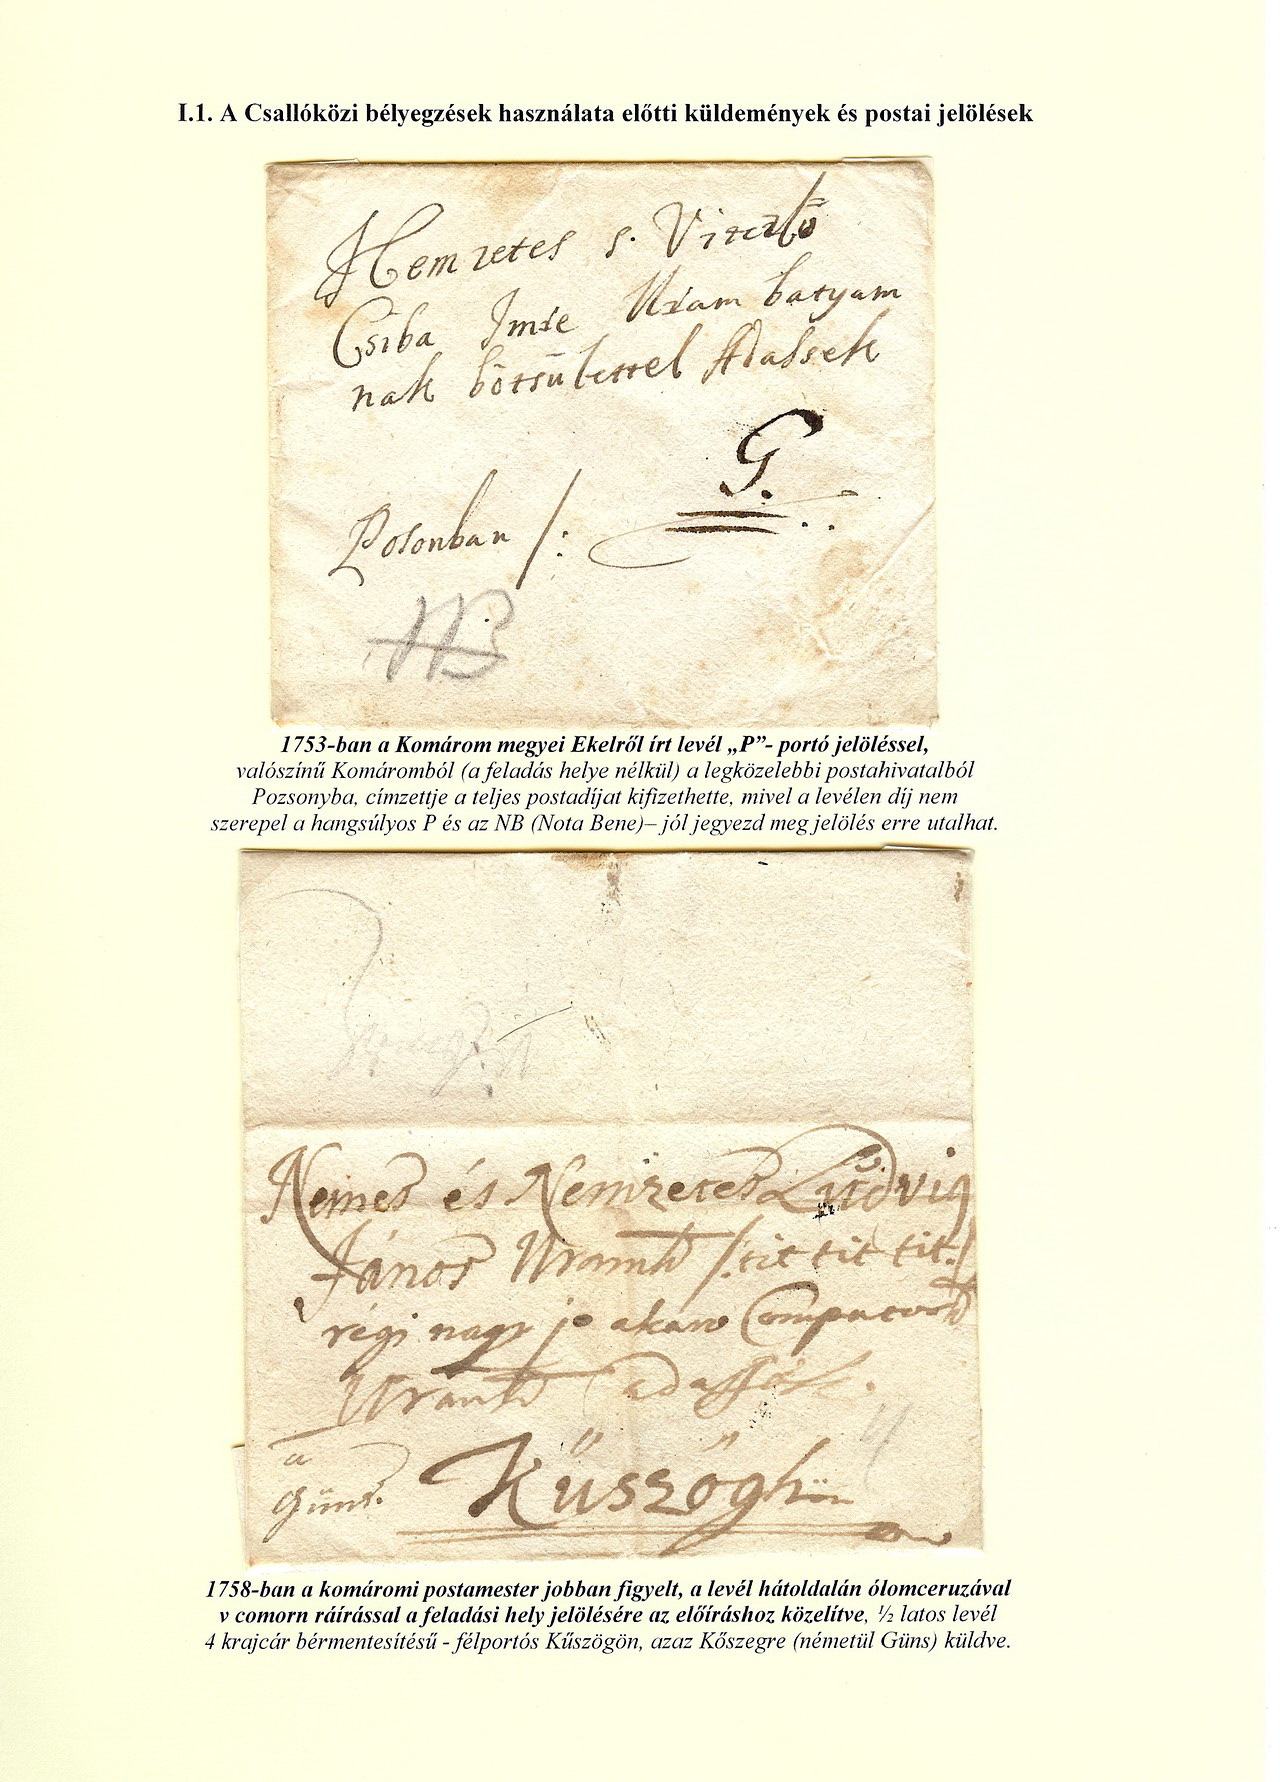 I.1. A Csallóközi bélyegzések használata előtti küldemények és postai jelölések
Nemzetes s. Vitézlő
Csiba Imre Uram batyam
nak bötsülettel Adassek
P.
Posonban /:
NB
1753-ban a Komárom megyei Ekelről írt levél „P”- portó jelöléssel,
valószínű Komáromból (a feladás helye nélkül) a legközelebbi postahivatalból
Pozsonyba, címzettje a teljes postadíjat kifizethette, mivel a levélen díj nem
szerepel a hangsúlyos P és az NB (Nota Bene)– jól jegyezd meg jelölés erre utalhat.
Nemes és Nemzetes Ludvig
János Uramk /:tit tit tit:/
régi nagy jo akaro
Uramk
a
Güns. Kűszőghön
4
1758-ban a komáromi postamester jobban figyelt, a levél hátoldalán ólomceruzával
v comorn ráírással a feladási hely jelölésére az előíráshoz közelítve, ½ latos levél
4 krajcár bérmentesítésű - félportós Kűszögön, azaz Kőszegre (németül Güns) küldve.